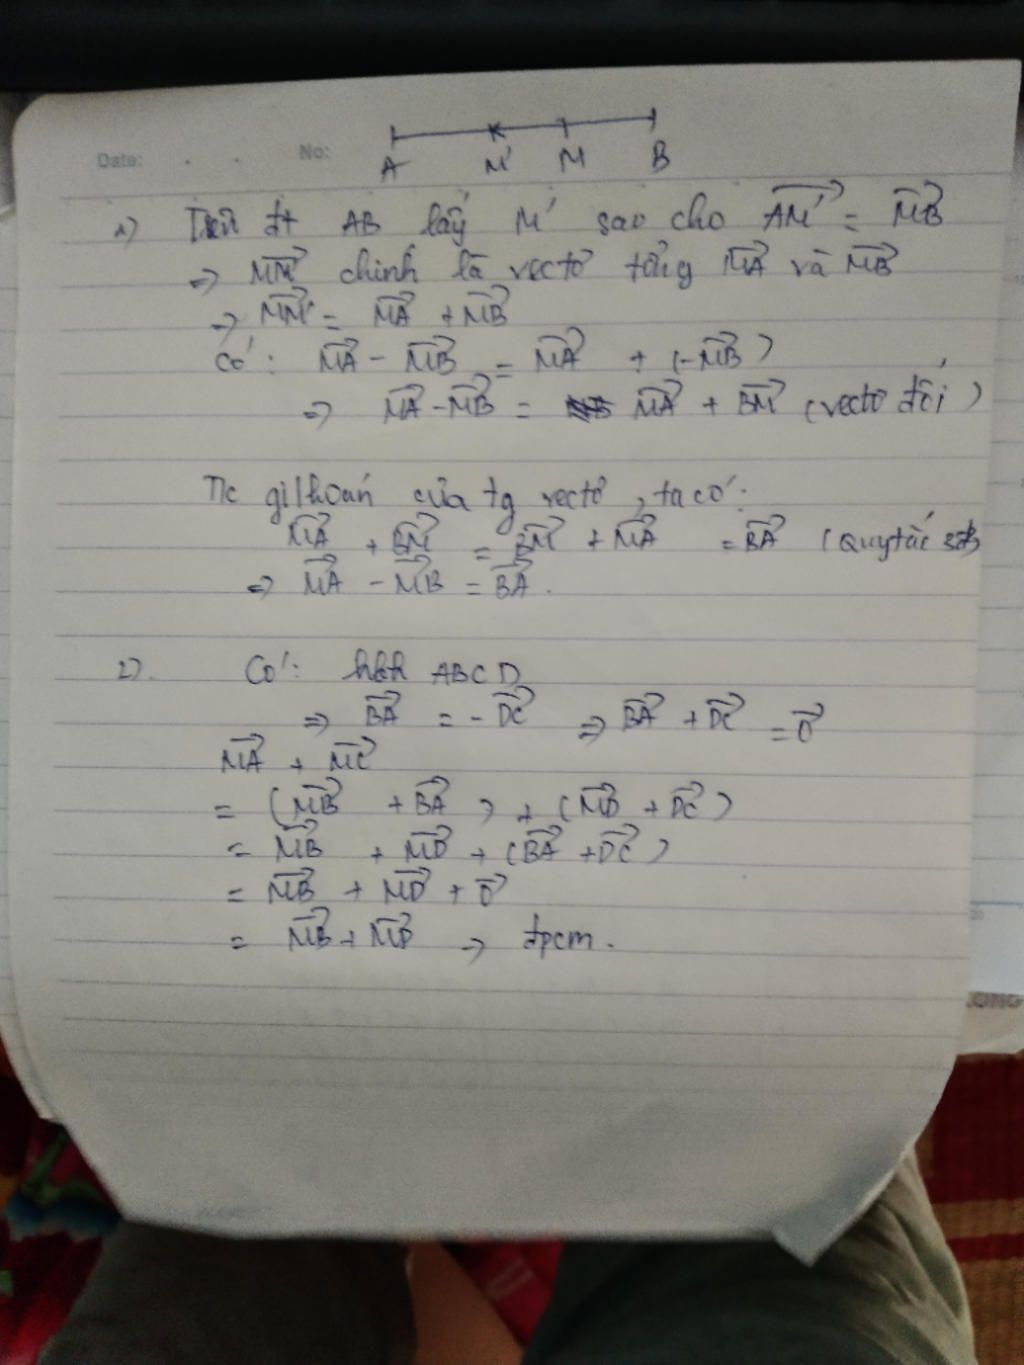 Date: . . No:
A M' M B
1) Trên đt AB lấy M' sao cho \overrightarrow{AM'} = \overrightarrow{MB}
=> \overrightarrow{MM'} chính là vectơ tổng \overrightarrow{MA} và \overrightarrow{MB}
=> \overrightarrow{MM'} = \overrightarrow{MA} + \overrightarrow{MB}
Có: \overrightarrow{MA} - \overrightarrow{MB} = \overrightarrow{MA} + (-\overrightarrow{MB})
=> \overrightarrow{MA} - \overrightarrow{MB} = \overrightarrow{MA} + \overrightarrow{BM} (vectơ đối)
T/c giao hoán của tg vectơ, ta có:
\overrightarrow{MA} + \overrightarrow{BM} = \overrightarrow{BM} + \overrightarrow{MA} = \overrightarrow{BA} (Quy tắc 3đ)
=> \overrightarrow{MA} - \overrightarrow{MB} = \overrightarrow{BA}.
2). Có: hbh ABCD
=> \overrightarrow{BA} = -\overrightarrow{DC} => \overrightarrow{BA} + \overrightarrow{DC} = \overrightarrow{0}
\overrightarrow{MA} + \overrightarrow{MC}
= (\overrightarrow{MB} + \overrightarrow{BA}) + (\overrightarrow{MD} + \overrightarrow{DC})
= \overrightarrow{MB} + \overrightarrow{MD} + (\overrightarrow{BA} + \overrightarrow{DC})
= \overrightarrow{MB} + \overrightarrow{MD} + \overrightarrow{0}
= \overrightarrow{MB} + \overrightarrow{MD} => đpcm.